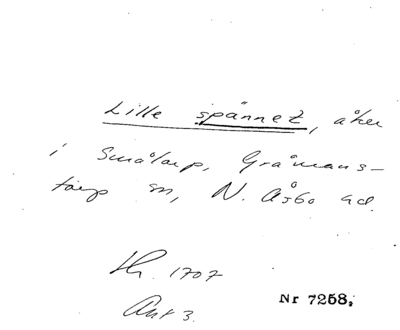 Lille spännet, åker
i Smålarp, Gråmans-
torp sn, N. Åsbo hd.
Lh. 1707
Akt 3.
Nr 7258.